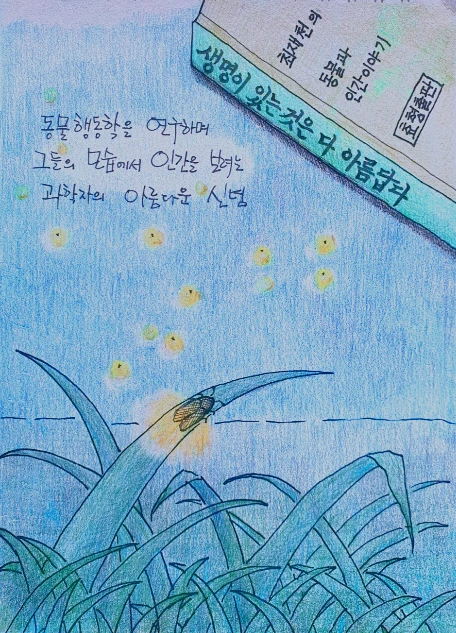 최재천의
동물과
인간이야기
효형출판
생명이 있는 것은 다 아름답다
동물행동학을 연구하며
그들의 모습에서 인간을 보려는
과학자의 아름다운 신념